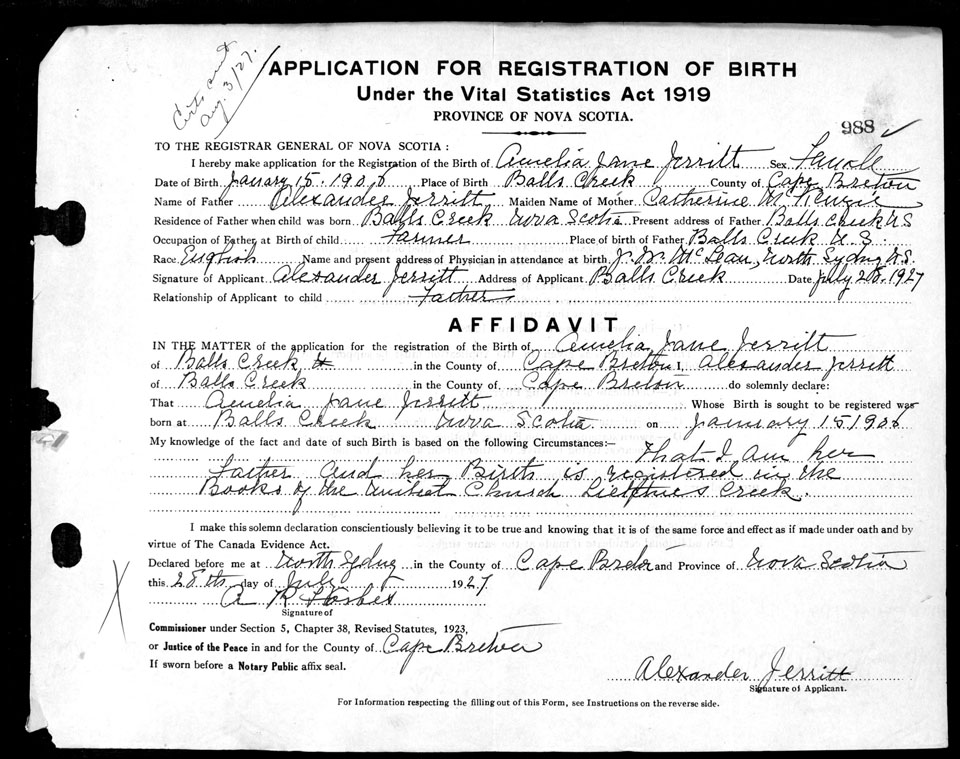 Certs sent
Aug. 3/27.
APPLICATION FOR REGISTRATION OF BIRTH
Under the Vital Statistics Act 1919
PROVINCE OF NOVA SCOTIA.
988
TO THE REGISTRAR GENERAL OF NOVA SCOTIA:
I hereby make application for the Registration of the Birth of Amelia Jane Jerritt Sex Female
Date of Birth January 15. 1906 Place of Birth Balls Creek County of Cape Breton
Name of Father Alexander Jerritt Maiden Name of Mother Catherine McKenzie
Residence of Father when child was born Balls Creek Nova Scotia Present address of Father Balls Creek N.S
Occupation of Father at Birth of child Farmer Place of birth of Father Balls Creek N. S.
Race English Name and present address of Physician in attendance at birth. McLean, North Sydney N.S.
Signature of Applicant Alexander Jerritt Address of Applicant Balls Creek Date July 28. 1927
Relationship of Applicant to child Father
AFFIDAVIT
IN THE MATTER of the application for the registration of the Birth of Amelia Jane Jerritt
of Balls Creek in the County of Cape Breton I, Alexander Jerritt
of Balls Creek in the County of Cape Breton do solemnly declare:
That Amelia Jane Jerritt Whose Birth is sought to be registered was
born at Balls Creek Nova Scotia on January 15 1906
My knowledge of the fact and date of such Birth is based on the following Circumstances:— That I am her
Father and her Birth is registered in the
Books of the Church Creek.
I make this solemn declaration conscientiously believing it to be true and knowing that it is of the same force and effect as if made under oath and by
virtue of The Canada Evidence Act.
Declared before me at North Sydney in the County of Cape Breton and Province of Nova Scotia
this 28th day of July 1927
A R Forbes
Signature of
Commissioner under Section 5, Chapter 38, Revised Statutes, 1923,
or Justice of the Peace in and for the County of Cape Breton
If sworn before a Notary Public affix seal.
Alexander Jerritt
Signature of Applicant.
For Information respecting the filling out of this Form, see Instructions on the reverse side.